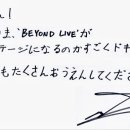 ！
は、"BEYOND LIVE"が
テージになるのかすごくドキ
もたくさんおうえんしてくださ